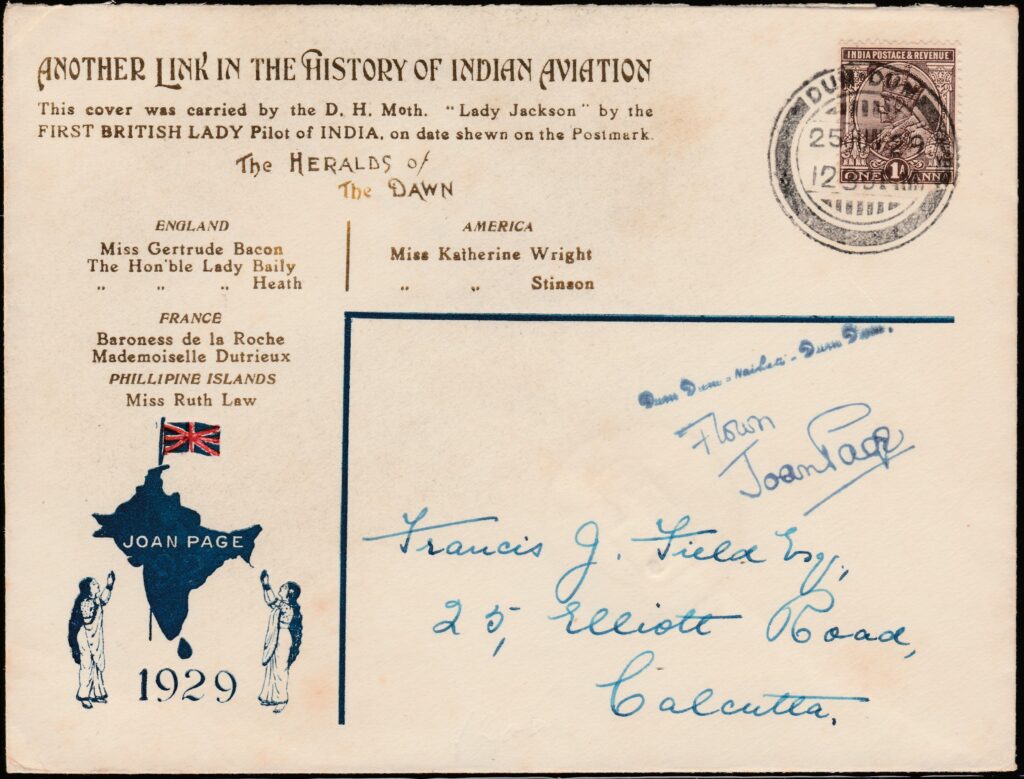 ANOTHER LINK IN THE HISTORY OF INDIAN AVIATION
This cover was carried by the D. H. Moth. "Lady Jackson" by the
FIRST BRITISH LADY Pilot of INDIA, on date shewn on the Postmark.
The HERALDS of
The DAWN
ENGLAND
Miss Gertrude Bacon
The Hon'ble Lady Baily
„ „ „ Heath
FRANCE
Baroness de la Roche
Mademoiselle Dutrieux
PHILLIPINE ISLANDS
Miss Ruth Law
AMERICA
Miss Katherine Wright
„ „ Stinson
INDIA POSTAGE & REVENUE
1A
ONE ANNA
DUM-DUM
25 JUN 29
12
Dum Dum - Naihati - Dum Dum.
Flown
Joan Page
Francis J. Field Esq,
25, Elliott Road,
Calcutta.
JOAN PAGE
1929